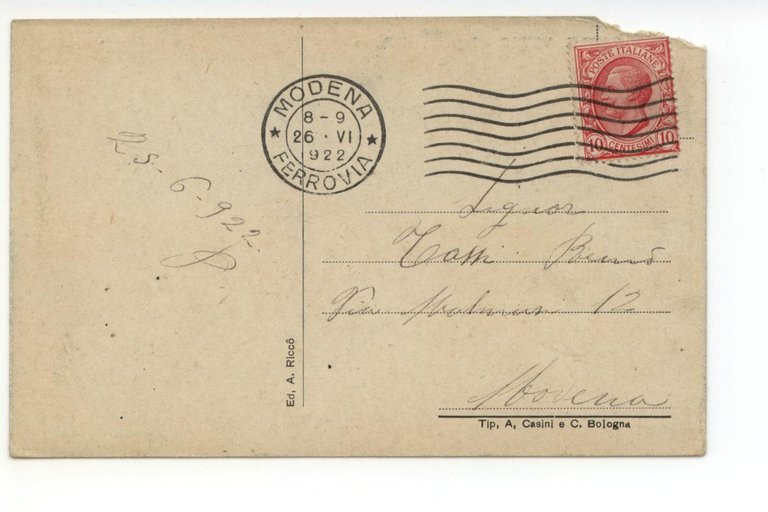 POSTE ITALIANE
10 CENTESIMI 10
MODENA
8-9
26 · VI
1922
FERROVIA
25-6-922
Signor
Tassi
Via 12
Modena
Ed, A. Riccò
Tip, A, Casini e C. Bologna